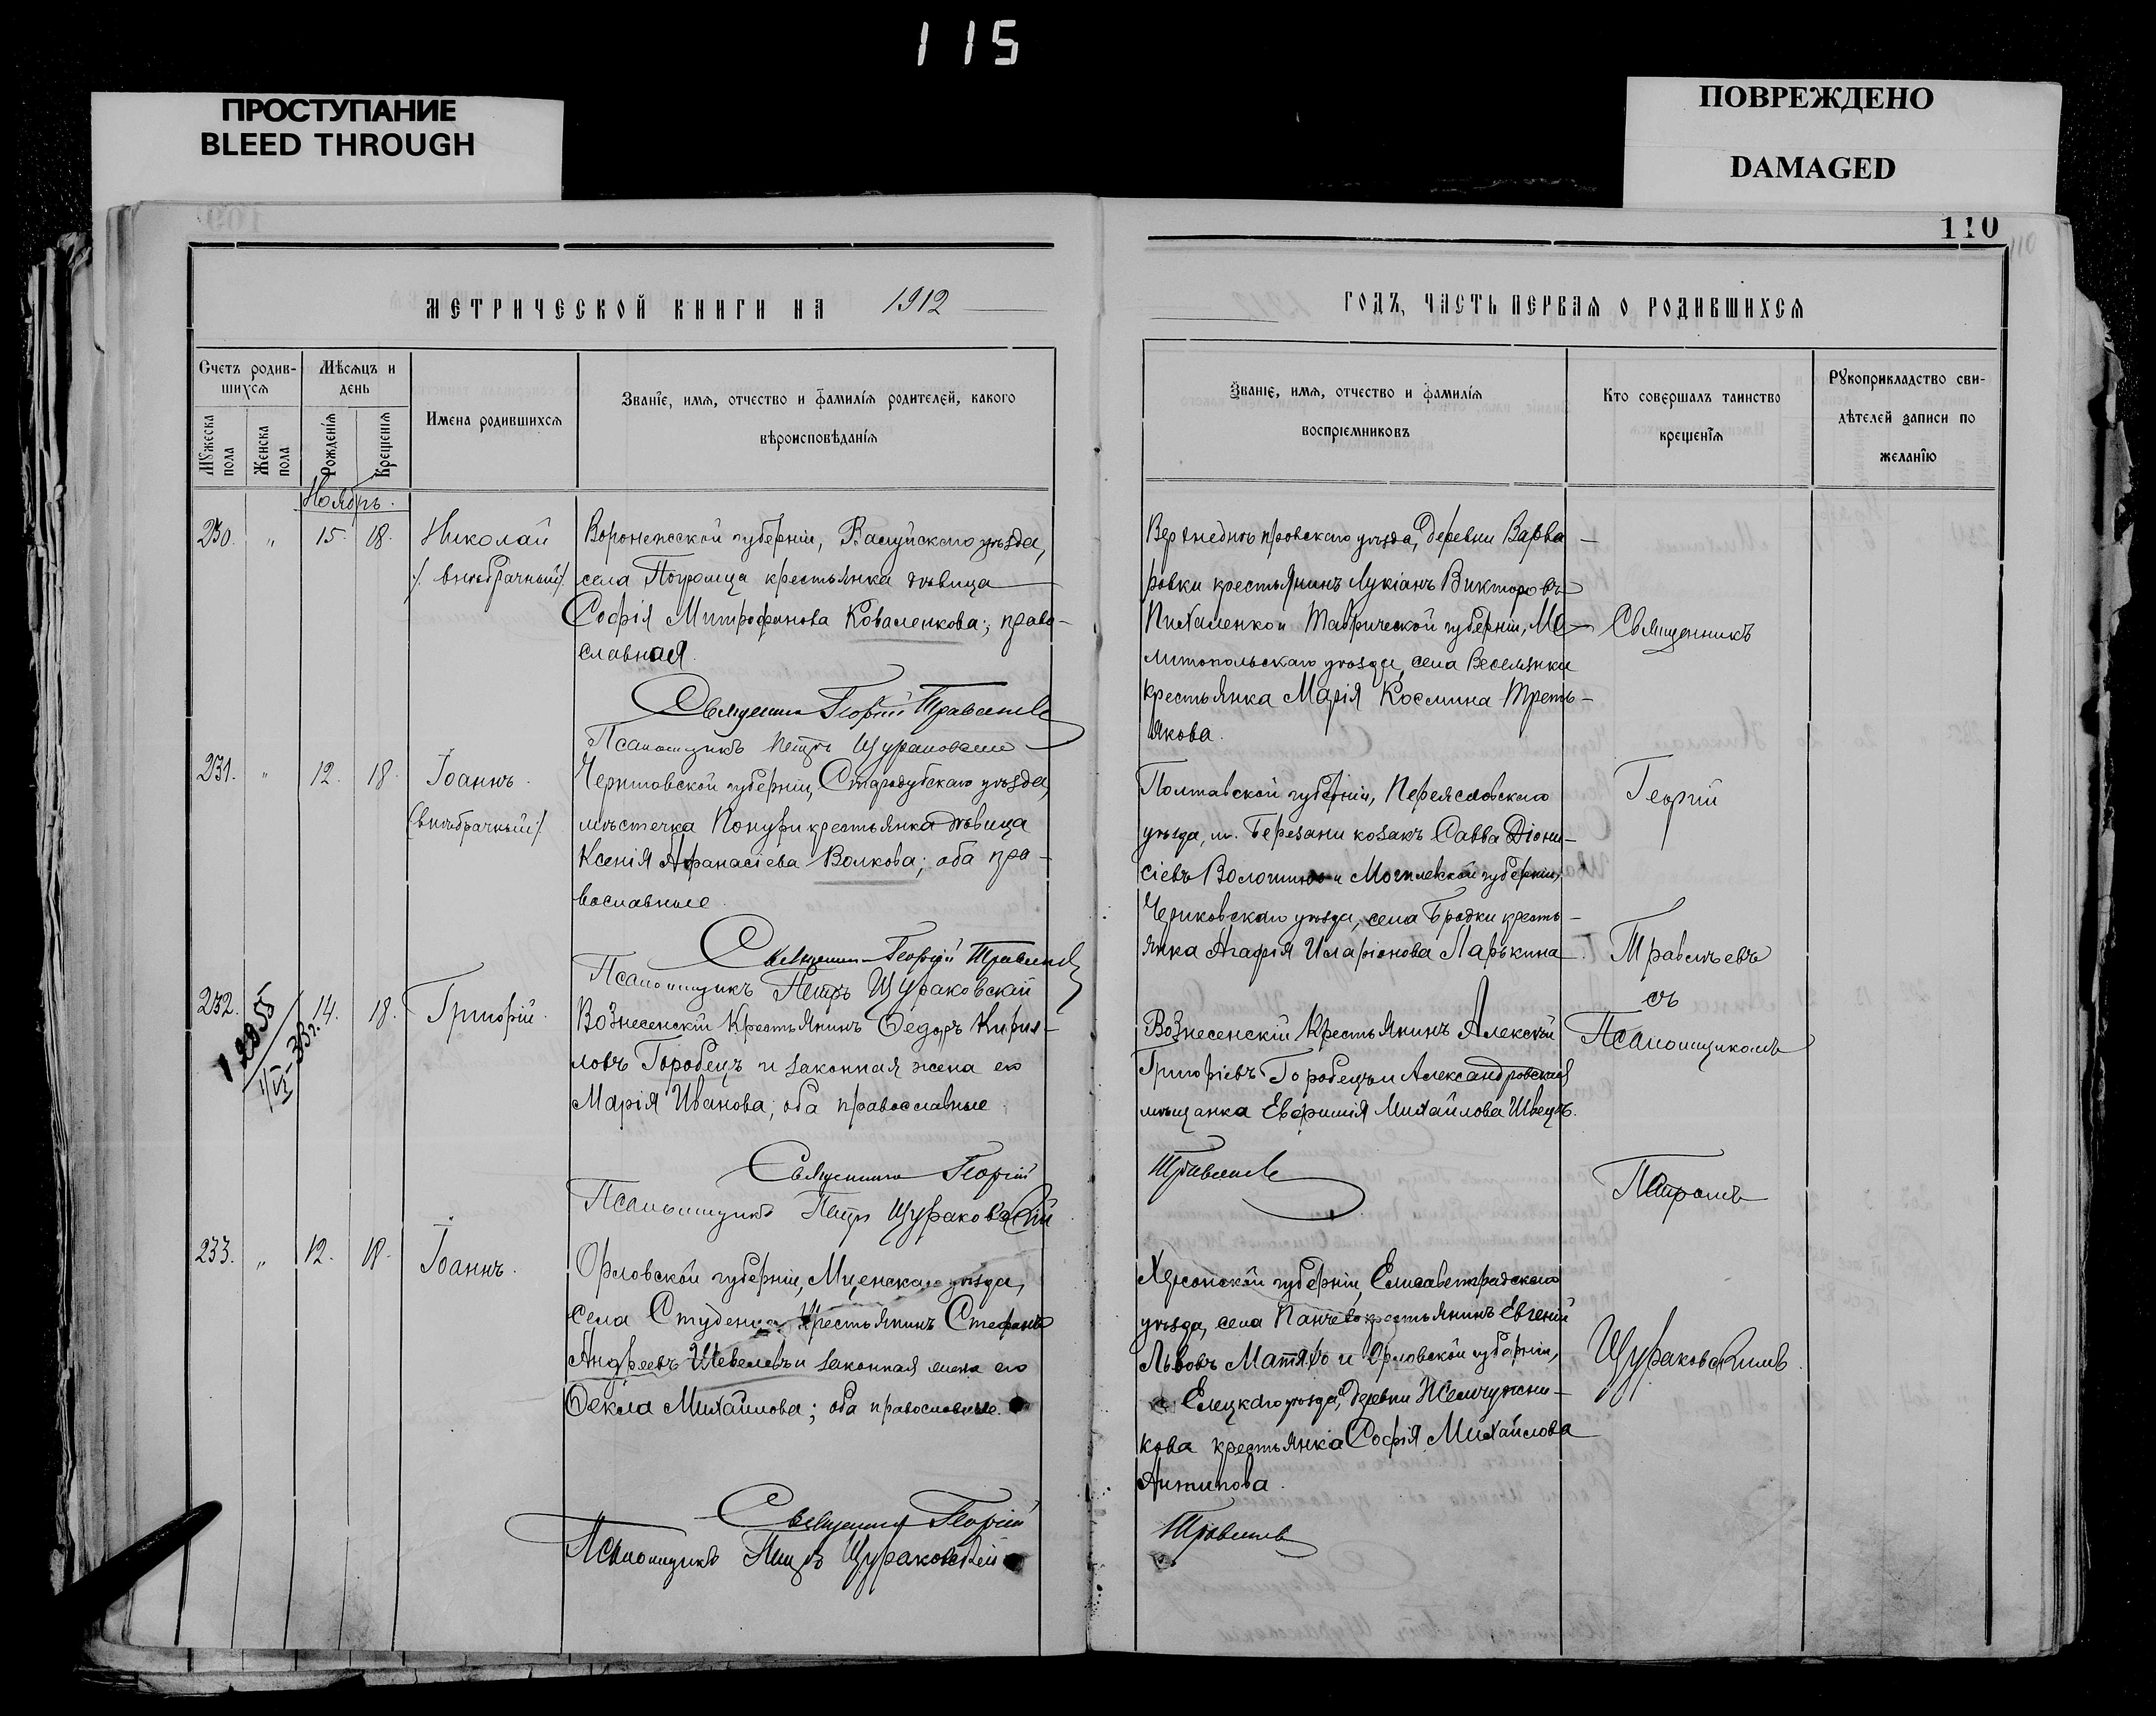 115
ПРОСТУПАНИЕ
BLEED THROUGH
ПОВРЕЖДЕНО
DAMAGED
110
МЕТРИЧЕСКОЙ КНИГИ НА 1912
ГОДЪ, ЧАСТЬ ПЕРВАЯ О РОДИВШИХСЯ
Счетъ родив-
шихся
Мѣсяцъ и
день
Мужеска пола
Женска пола
Рожденія
Крещенія
Имена родившихся
Званіе, имя, отчество и фамилія родителей, какого
вѣроисповѣданія
Званіе, имя, отчество и фамилія
воспріемниковъ
Кто совершалъ таинство
крещенія
Рукоприкладство сви-
дѣтелей записи по
желанію
Ноябрь.
230. " 15. 18. Николай
/внѣбрачный/
Воронежской губерніи, Валуйскаго уѣзда,
села Погромца крестьянка дѣвица
Софія Митрофанова Коваленкова; право-
славная.
Священникъ Георгій Травлѣевъ
Псаломщикъ Петръ Щураковскій
Верхнеднѣпровскаго уѣзда, деревни Варва-
ровки крестьянинъ Лукіанъ Викторовъ
Пихаленко и Таврической губерніи, Ме-
литопольскаго уѣзда, села Веселянки
крестьянка Марія Космина Треть-
якова.
231. " 12. 18. Іоаннъ.
/внѣбрачный/
Черниговской губерніи, Стародубскаго уѣзда,
мѣстечка Понури крестьянка дѣвица
Ксенія Афанасіева Волкова; оба пра-
вославные.
Священникъ Георгій Травлѣевъ
Псаломщикъ Петръ Щураковскій
Полтавской губерніи, Переяславскаго
уѣзда, м. Березани козакъ Савва Діони-
сіевъ Волошинъ и Могилевской губерніи,
Чериковскаго уѣзда, села Бродки кресть-
янка Агафія Иларіонова Ларькина.
232. 14. 18. Григорій.
Вознесенскій крестьянинъ Ѳедоръ Кирил-
ловъ Городецъ и законная жена его
Марія Иванова; оба православные.
Священникъ Георгій
Псаломщикъ Петръ Щураковскій
Вознесенскій крестьянинъ Алексѣй
Григоріевъ Городецъ и Александровская
мѣщанка Евфимія Михайлова Швецъ.
Травлѣевъ
233. " 12. 18. Іоаннъ.
Орловской губерніи, Мценскаго уѣзда,
села Студенца крестьянинъ Стефанъ
Андреевъ Шевелевъ и законная жена его
Ѳекла Михайлова; оба православные.
Священникъ Георгій
Псаломщикъ Петръ Щураковскій
Херсонской губерніи, Елисаветградскаго
уѣзда, села Панчево крестьянинъ Евгеній
Львовъ Матяхъ и Орловской губерніи,
Елецкаго уѣзда, деревни Жемчужни-
кова крестьянка Софія Михайлова
Антипова.
Травлѣевъ
Священникъ
Георгій
Травлѣевъ
съ
Псаломщикомъ
Петромъ
Щураковскимъ.